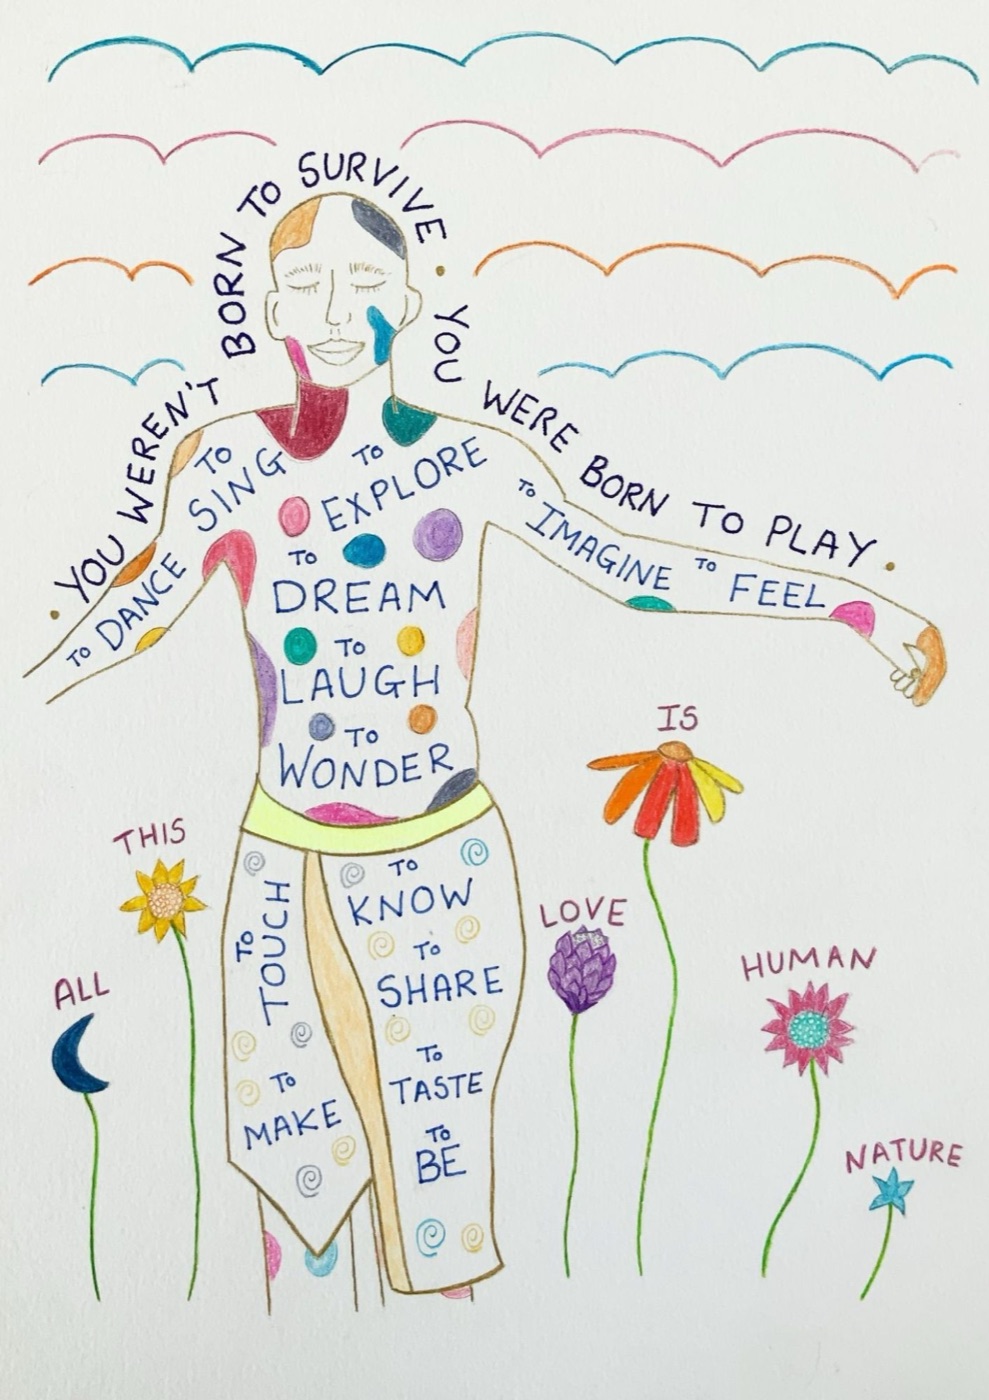 YOU WEREN'T BORN TO SURVIVE.
YOU WERE BORN TO PLAY.
TO DANCE
TO SING
TO EXPLORE
TO IMAGINE
TO FEEL
TO DREAM
TO LAUGH
TO WONDER
TO TOUCH
TO MAKE
TO KNOW
TO SHARE
TO TASTE
TO BE
ALL
THIS
LOVE
IS
HUMAN
NATURE